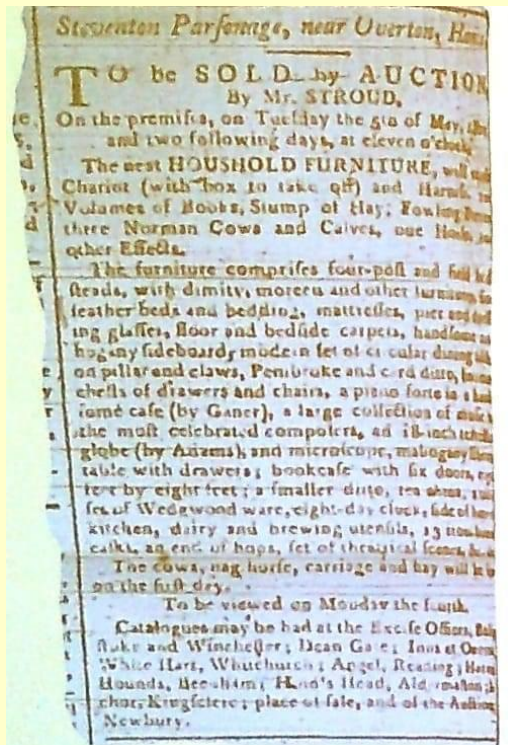 Steventon Parsonage, near Overton, Hants
TO be SOLD by AUCTION
By Mr. STROUD,
On the premises, on Tuesday the 5th of May,
and two following days, at eleven o'clock,
The neat HOUSHOLD FURNITURE, well made
Chariot (with box to take off) and Harness,
Volumes of Books, Stump of Hay; Fowling
three Norman Cows and Calves, one Horse, and
other Effects.
The furniture comprises four-post and field bed
steads, with dimity, moreen and other furniture,
feather beds and bedding, mattresses, pier and
ing glasses, floor and bedside carpets, handsome
hogany sideboard, modern set of circular dining
on pillar and claws, Pembroke and card ditto,
chests of drawers and chairs, a piano forte in a
some case (by Ganer), a large collection of music
the most celebrated composers, an 18-inch
globe (by Adams), and microscope, mahogany
table with drawers; bookcase with six doors,
feet by eight feet; a smaller ditto, tea
set of Wedgwood ware, eight-day clock, side of
kitchen, dairy and brewing utensils, 13
casks, an end of hops, set of theatrical scenes,
The cows, nag horse, carriage and hay will be
on the first day.
To be viewed on Monday the fourth.
Catalogues may be had at the Excise Offices,
stoke and Winchester; Dean Gate; Inns at
White Hart, Whitchurch; Angel, Reading;
Hounds, Beenham; Hind's Head, Aldermaston;
chor, Kingsclere; place of sale, and of the
Newbury.